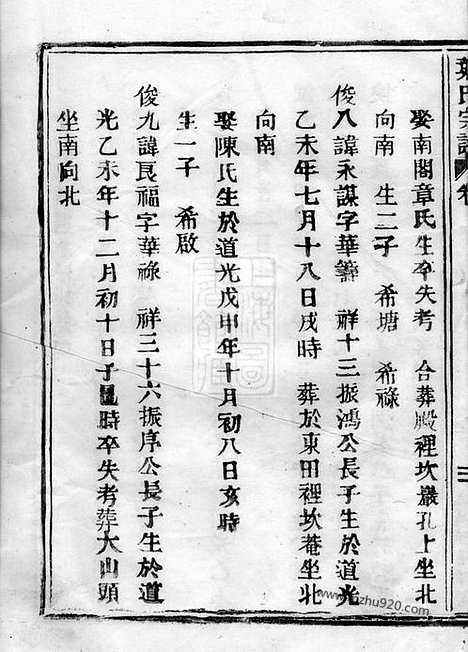 葉氏宗譜 卷
娶南閣章氏生卒失考 合葬殿裡坎巖孔上坐北
向南 生二子 希塘 希祿
俊八諱永謀字華籌 祥十三振鴻公長子生於道光
乙未年七月十八日戌時 葬於東田裡坎菴坐北
向南
娶陳氏生於道光戊申年十月初八日亥時
生一子 希啟
俊九諱良福字華祿 祥三十六振序公長子生於道
光乙未年十二月初十日子時卒失考葬大山頭
坐南向北
zhu920.com